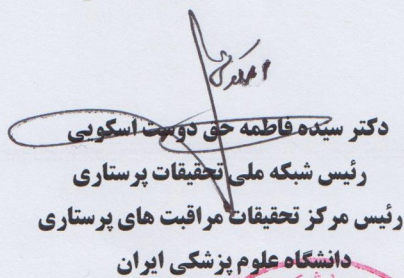 دکتر سیده فاطمه حق دوست اسکویی
رئیس شبکه ملی تحقیقات پرستاری
رئیس مرکز تحقیقات مراقبت های پرستاری
دانشگاه علوم پزشکی ایران